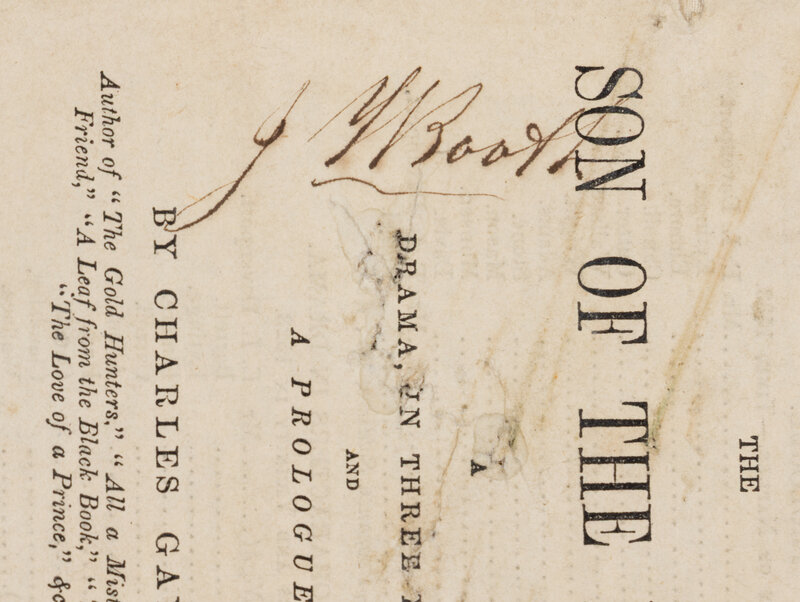 THE
SON OF THE
A
DRAMA, IN THREE
AND
A PROLOGUE
BY CHARLES
Author of "The Gold Hunters," "All a
Friend," "A Leaf from the Black Book,"
"The Love of a Prince,"
J Booth